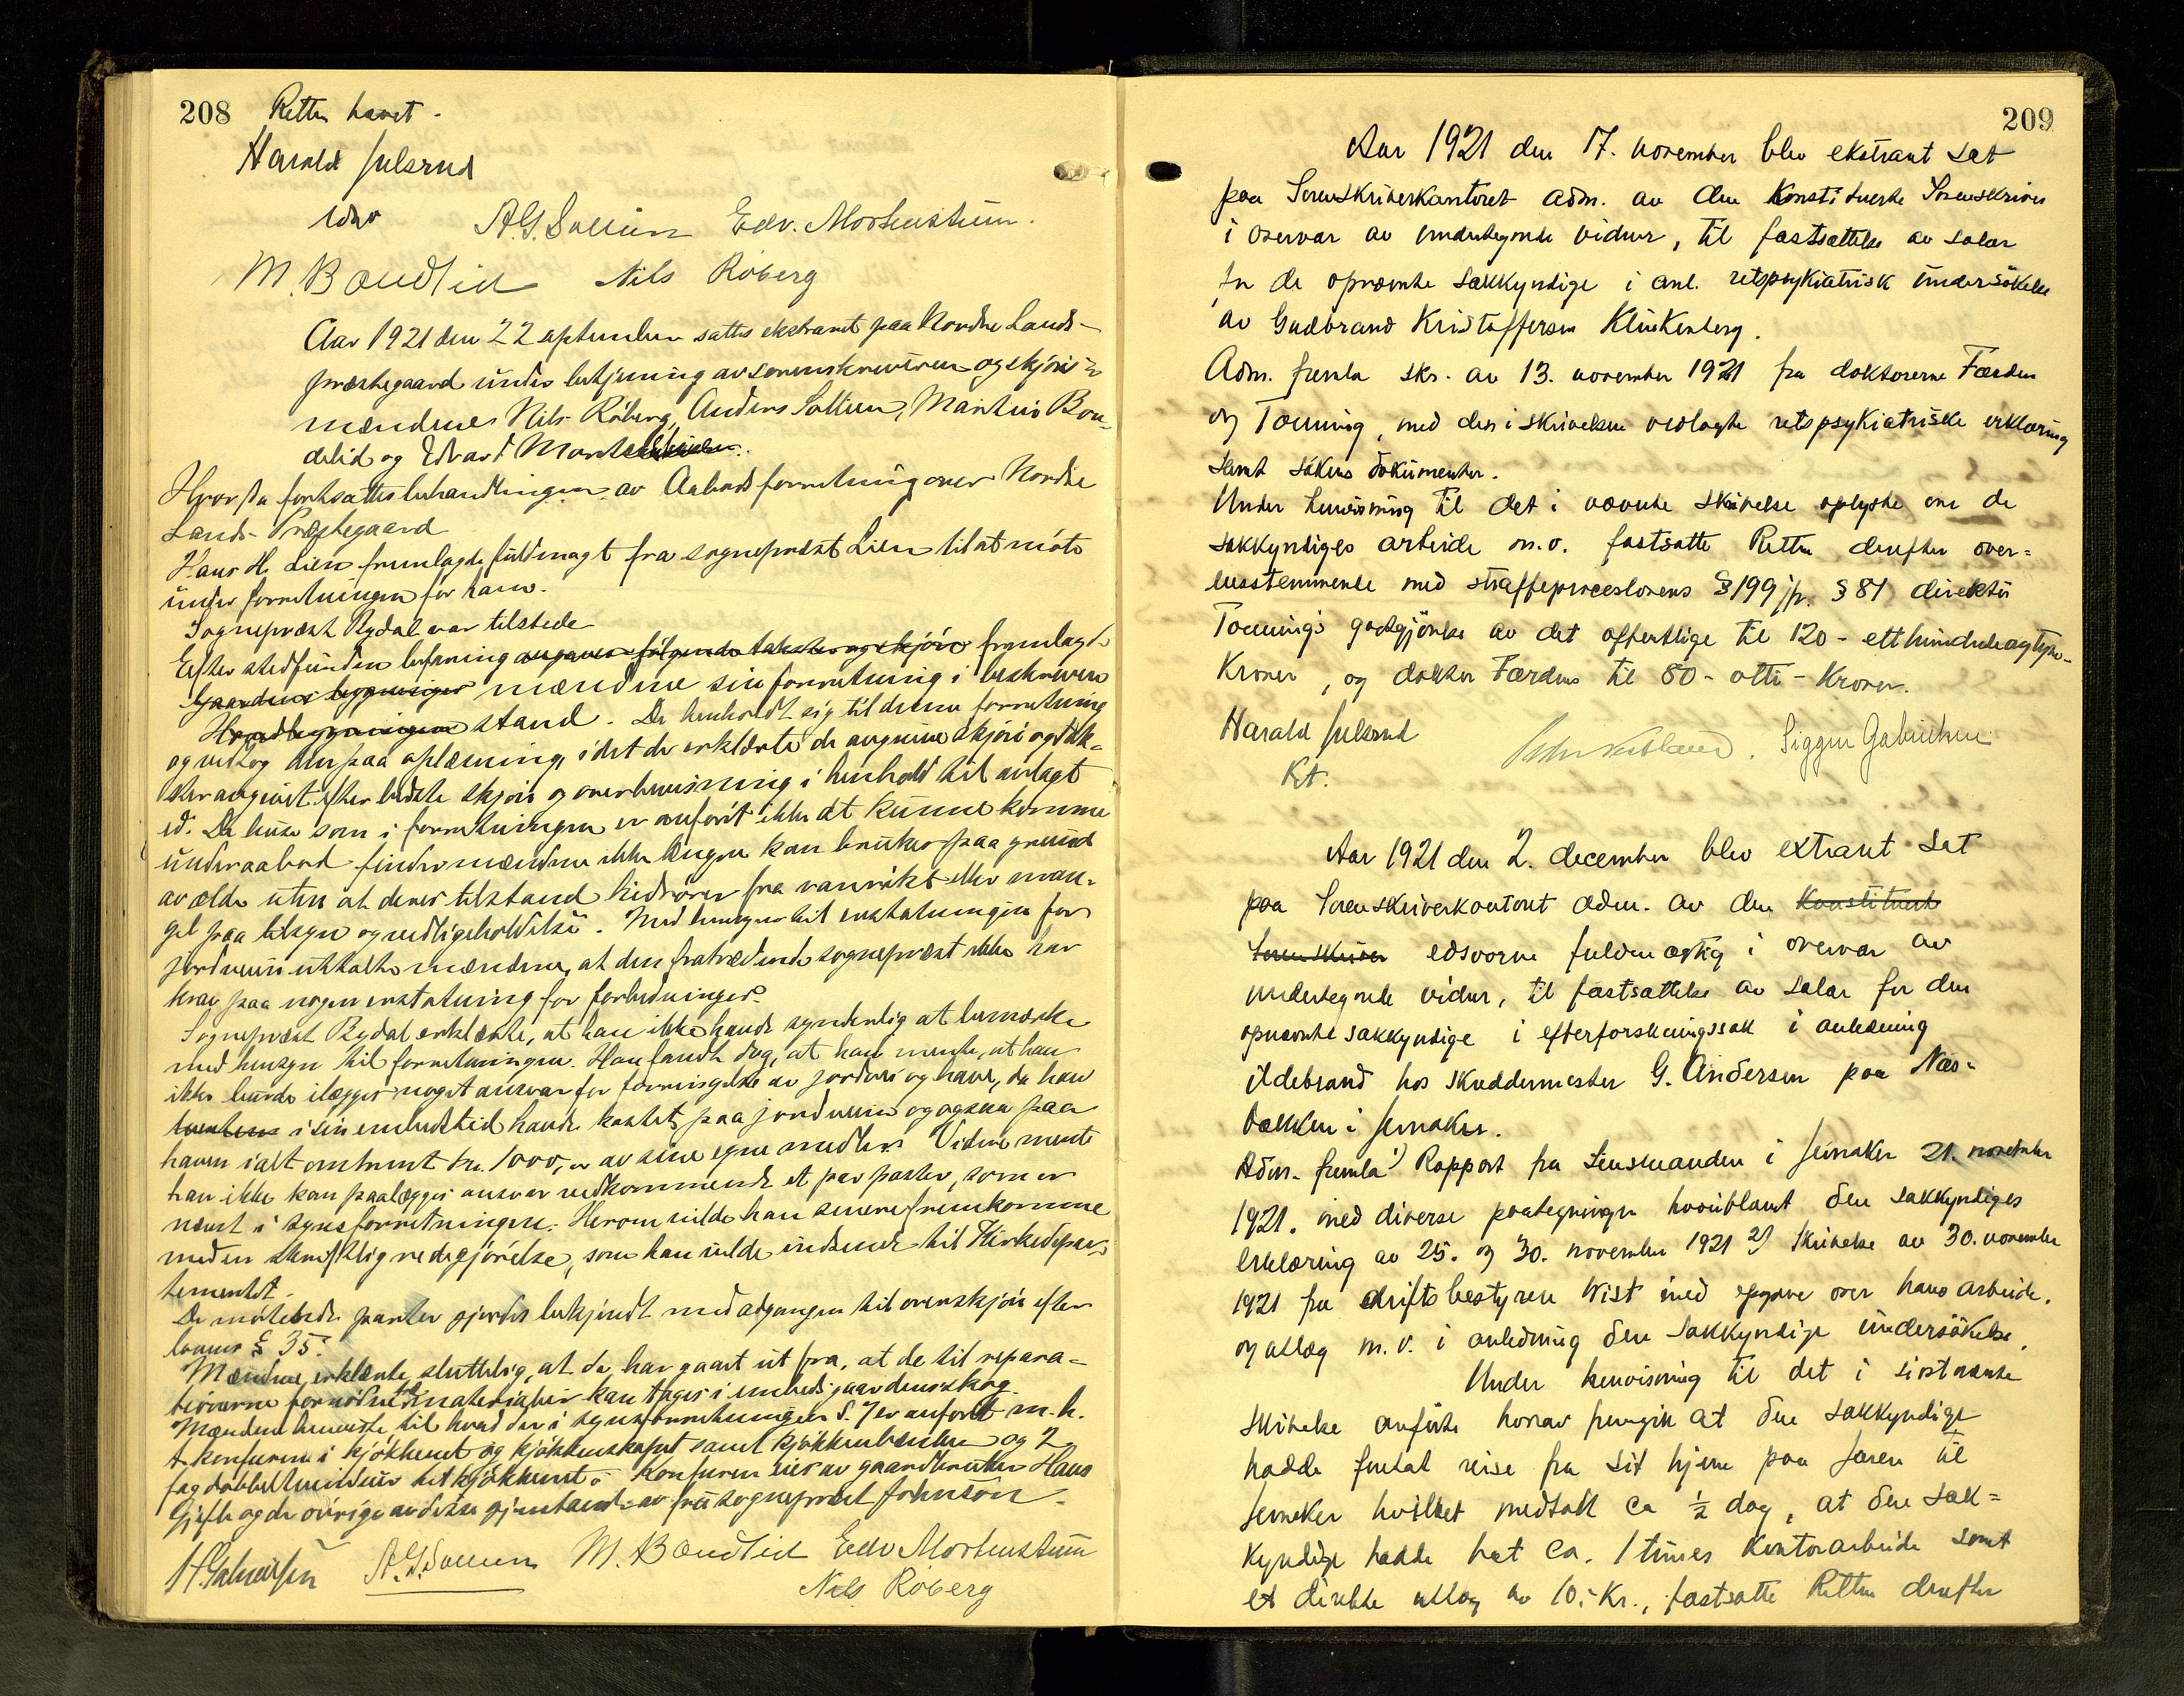 208 Retten hævet.
Harald Julsrud
A.G. Sollien Edv. Mortenstuen.
M. Bondlid Nils Röberg
Aar 1921 den 22 september sattes ekstraret paa Nordre Lands-
præstegaard under betjening av sorenskriveren og skjöns-
mændene Nils Röberg, Anders Sollien, Martin Bon-
delid og Edvard Mortenstuen.
Hvorda fortsattes behandlingen av Aabodsforretning over Nordre
Lands Præstegaard
Hans H. Lien fremlagde fuldmagt fra sogneprest Lien til at möte
under forretningen for ham.
Sogneprest Rydal var tilstede
Efter stedfunden befaring avgaves følgende takster og skjön fremlagde
Gaardens bygninger mændene sin forretning i beskreven
Hovedbygningen stand. De henholdt sig til denne forretning
og vedtog den paa oplæsning, idet de erklærte de avgivne skjön og tak-
ster avgivet efter bedste skjön og overbevisning i henhold til avlagt
ed. De huse som i forretningen er anfört ikke at kunne komme
under aabod finder mændene ikke længer kan brukes paa grund
av ælde uten at deres tilstand hidrörer fra vanrökt eller man-
gel paa tilsyn og vedligeholdelse. Med hensyn til erstatningen for
jordveien uttalte mændene, at den fratrædende sogneprest ikke har
krav paa nogen erstatning for forbedringer.
Sogneprest Rydal erklærte, at han ikke havde synderlig at bemerke
med hensyn til forretningen. Han fandt dog, at han mente, at han
ikke burde ilægges noget ansvar for forringelse av jordvei og have, da han
i sin embedstid havde kostet paa jordveien og ogsaa paa
haven ialt omtrent kr. 1000,- av sine egne midler. Videre mente
han ikke kan paalægges ansvar vedkommende et par poster, som er
nævnt i synsforretningen. Herom vilde han senere fremkomme
med en skriftlig redegjörelse, som han vilde indsende til Kirkedepar-
tementet.
De mötende parter gjordes bekjendt med adgangen til overskjön efter
lovens § 35.
Mændene erklærte sluttelig, at de har gaaet ut fra, at de til repara-
tionerne fornödne træmaterialier kan tages i embedsgaardens skog.
Mændene henviste til hvad der i synsforretningen S. 7 er anfört m. h.
t. komfuren i kjökkenet og kjökkenskapet samt kjökkenbænken og 2
fag dobbeltvinduer i kjökkenet. Komfuren eies av gaardbruker Hans
Gjefle og de övrige av disse gjenstande av fru sogneprest Johnson.
A.G. Sollien M. Bondlid Edv Mortenstuen
Nils Röberg
209
Aar 1921 den 17. november blev ekstraret sat
paa Sorenskriverkontoret adm. av den konstituerte Sorenskriver
i overvær av undertegnede vidner, til fastsættelse av salær
for de opnævnte sakkyndige i anl. retspsykiatrisk undersökelse
av Gudbrand Kristoffersen Klinkenberg.
Adm. fremla skr. av 13. november 1921 fra doktorerne Færden
og Tonning, med den i skrivelsen vedlagte retspsykiatriske erklæring
samt sakens dokumenter.
Under henvisning til det i nævnte skrivelse oplyste om de
sakkyndiges arbeide m.v. fastsatte Retten derefter over-
ensstemmende med straffeproceslovens § 199 jfr. § 81 direktör
Tonnings godtgjörelse av det offentlige til 120 - etthundredeogtyve-
Kroner, og doktor Færdens til 80 - otti - Kroner.
Harald Julsrud
Kt.
Siggen Gabrielsen
Aar 1921 den 2. december blev extraret sat
paa Sorenskriverkontoret adm. av den Konstituert
Sorenskriver edsvorne fuldmægtig i overvær av
undertegnede vidner, til fastsættelse av salær for den
opnævnte sakkyndige i efterforskningssak i anledning
ildebrand hos skreddermester G. Andersen paa Næs-
bakken i Jevnaker.
Adm. fremla 1) Rapport fra lensmanden i Jevnaker 21. november
1921. med diverse paategninger hvoriblant den sakkyndiges
Erklæring av 25. og 30. november 1921 2) Skrivelse av 30. november
1921 fra driftsbestyrer Wist med opgave over hans arbeide.
og utlæg m.v. i anledning den sakkyndige undersökelse.
Under henvisning til det i sistnævnte
skrivelse anförte hvorav fremgik at den sakkyndige
hadde foretat reise fra sit hjem paa Jaren til
Jevnaker hvilket medtok ca ½ dag, at den sak-
kyndige hadde hat ca. 1 times kontorarbeide samt
et direkte utlæg av 10,- Kr., fastsatte Retten derefter